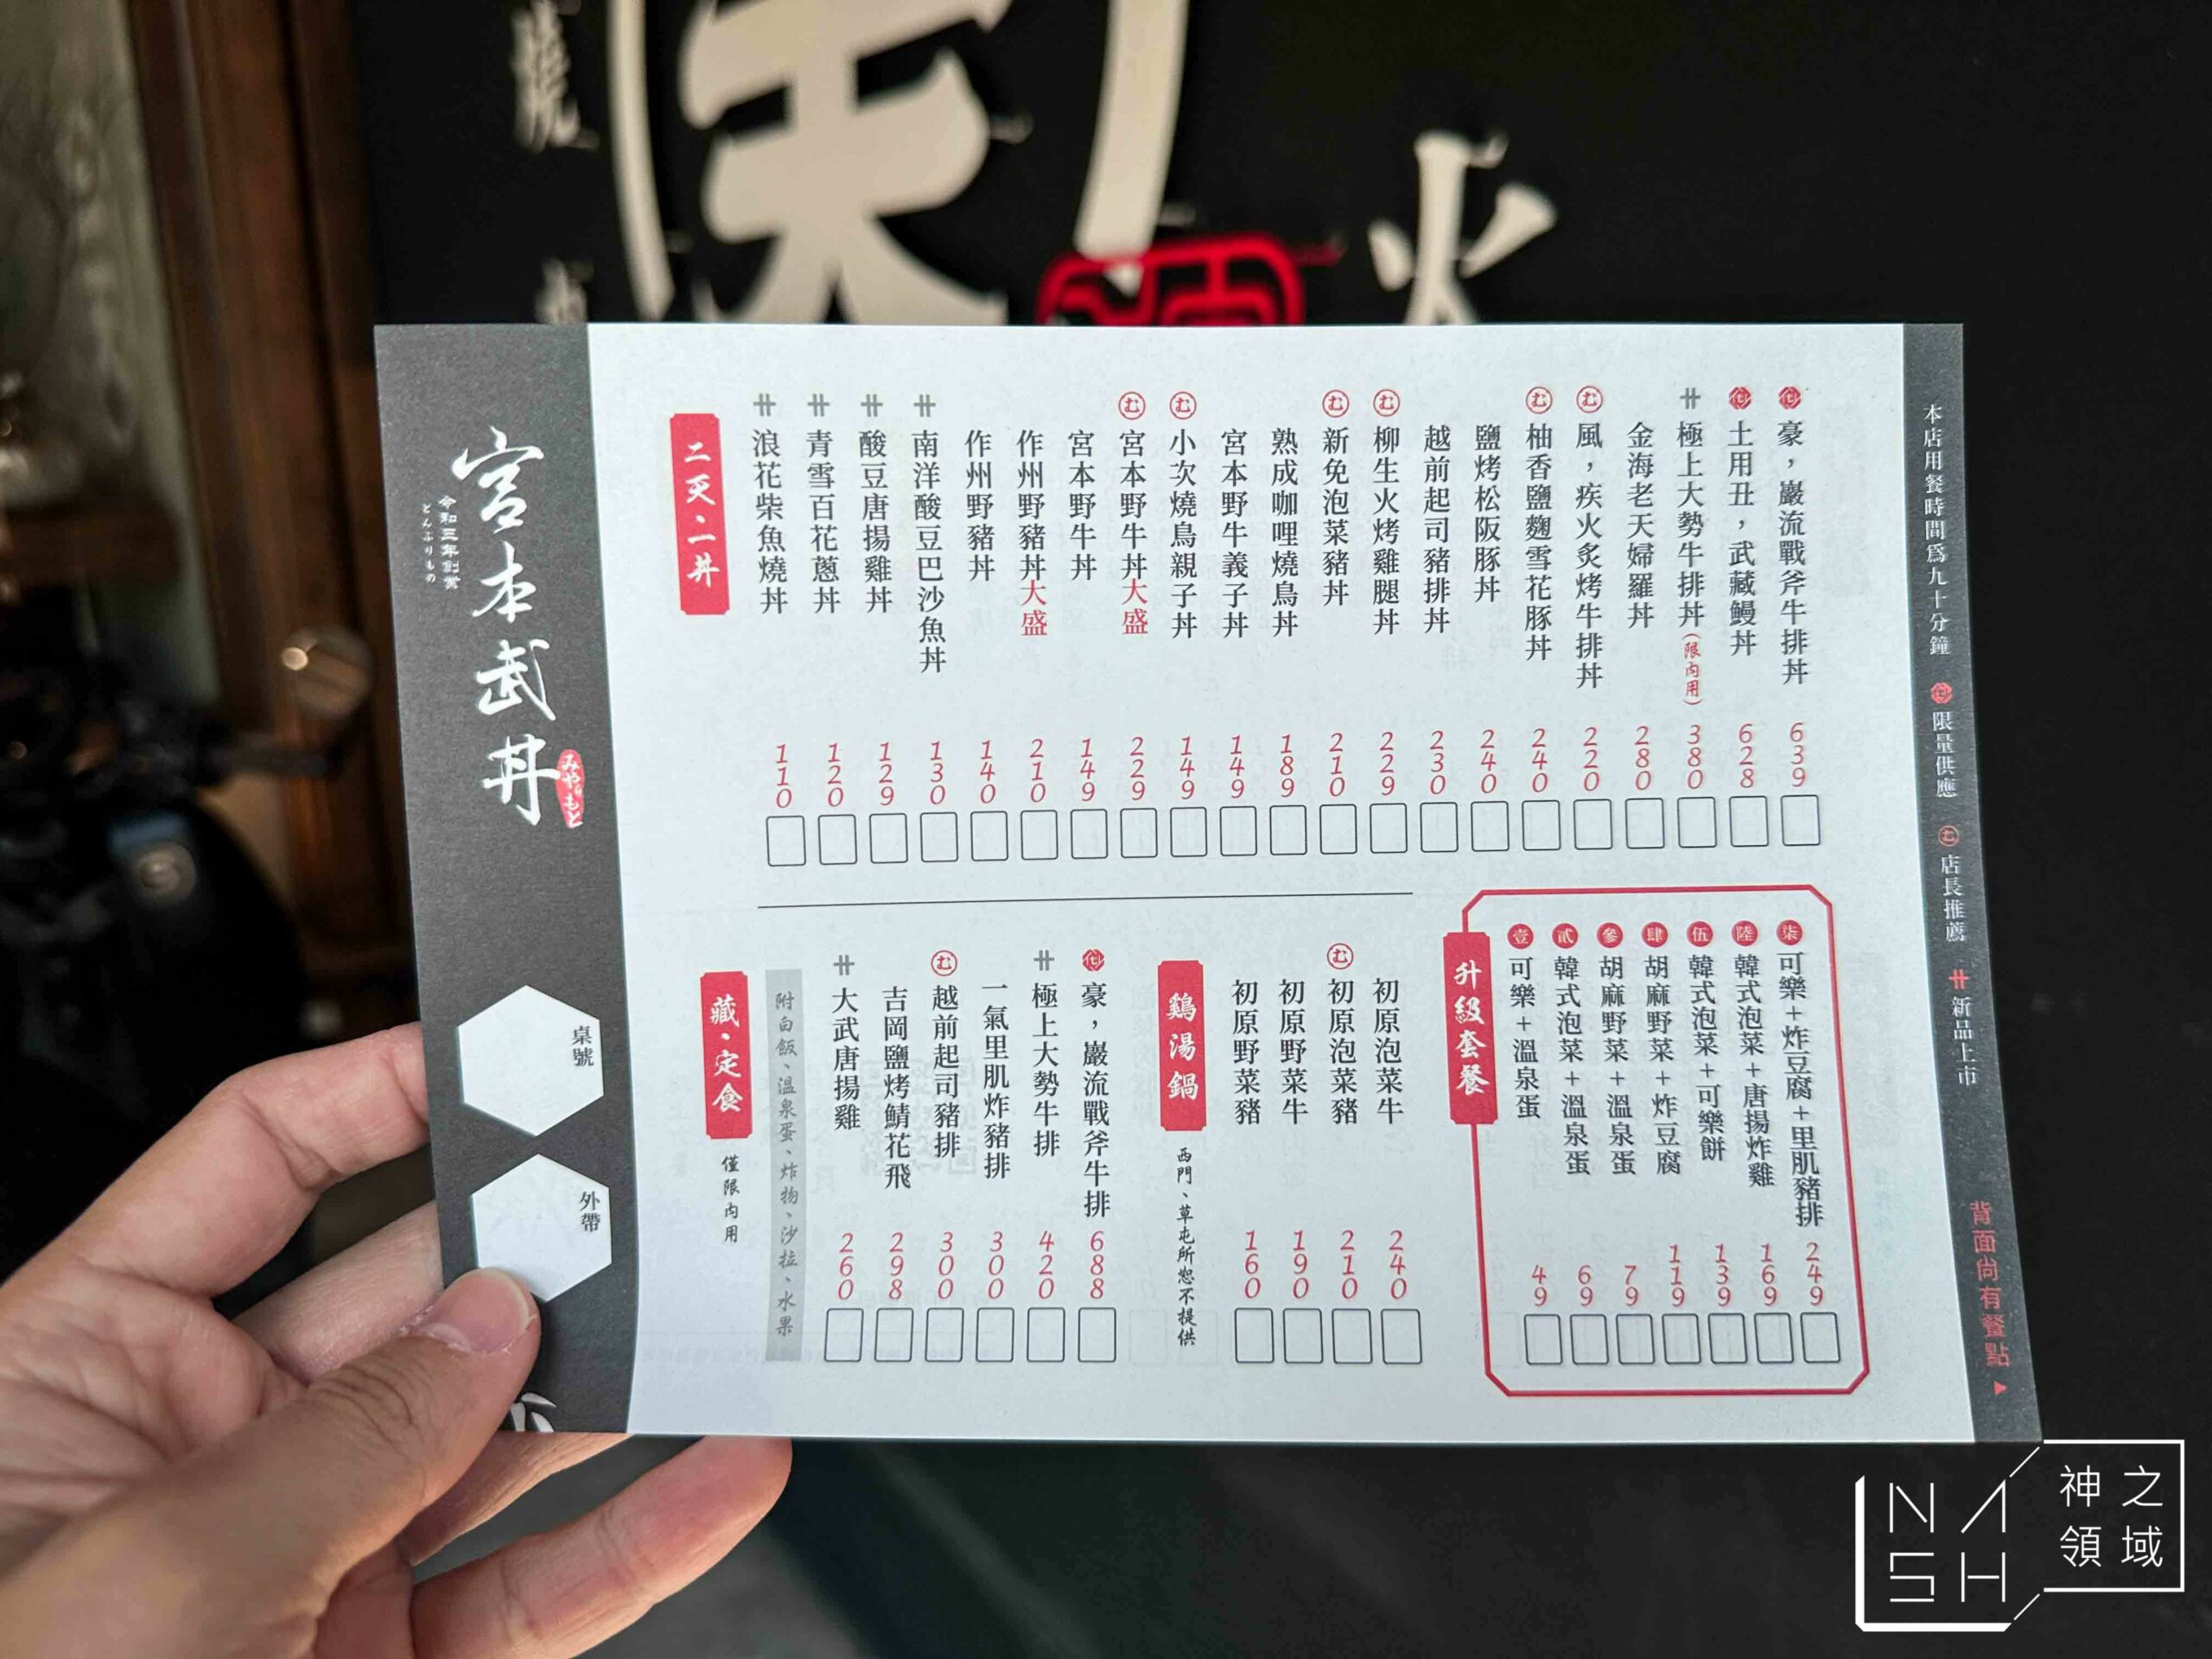 火
本店用餐時間為九十分鐘 限量供應 む 店長推薦 新品上市 背面尚有餐點▶
豪，巖流戰斧牛排丼 639
土用丑，武藏鰻丼 628
極上大勢牛排丼(限內用) 380
金海老天婦羅丼 280
む 風，疾火炙烤牛排丼 220
む 柚香鹽麴雪花豚丼 240
鹽烤松阪豚丼 240
越前起司豬排丼 230
む 柳生火烤雞腿丼 229
む 新免泡菜豬丼 210
熟成咖哩燒鳥丼 189
宮本野牛義子丼 149
む 小次燒鳥親子丼 149
む 宮本野牛丼大盛 229
宮本野牛丼 149
作州野豬丼大盛 210
作州野豬丼 140
南洋酸豆巴沙魚丼 130
酸豆唐揚雞丼 129
青雪百花蔥丼 120
浪花柴魚燒丼 110
二天・二丼
柒 可樂+炸豆腐+里肌豬排 249
陸 韓式泡菜+唐揚炸雞 169
伍 韓式泡菜+可樂餅 139
肆 胡麻野菜+炸豆腐 119
參 胡麻野菜+溫泉蛋 79
貳 韓式泡菜+溫泉蛋 69
壹 可樂+溫泉蛋 49
升級套餐
初原泡菜牛 240
む 初原泡菜豬 210
初原野菜牛 190
初原野菜豬 160
鷄湯鍋 西門、草屯所恕不提供
豪，巖流戰斧牛排 688
極上大勢牛排 420
一氣里肌炸豬排 300
む 越前起司豬排 300
吉岡鹽烤鯖花飛 298
大武唐揚雞 260
附白飯、溫泉蛋、炸物、沙拉、水果
藏・定食 僅限內用
宮本武丼
みやもと
令和三年創業
どんぶりもの
桌號
外帶
NASH
神之領域